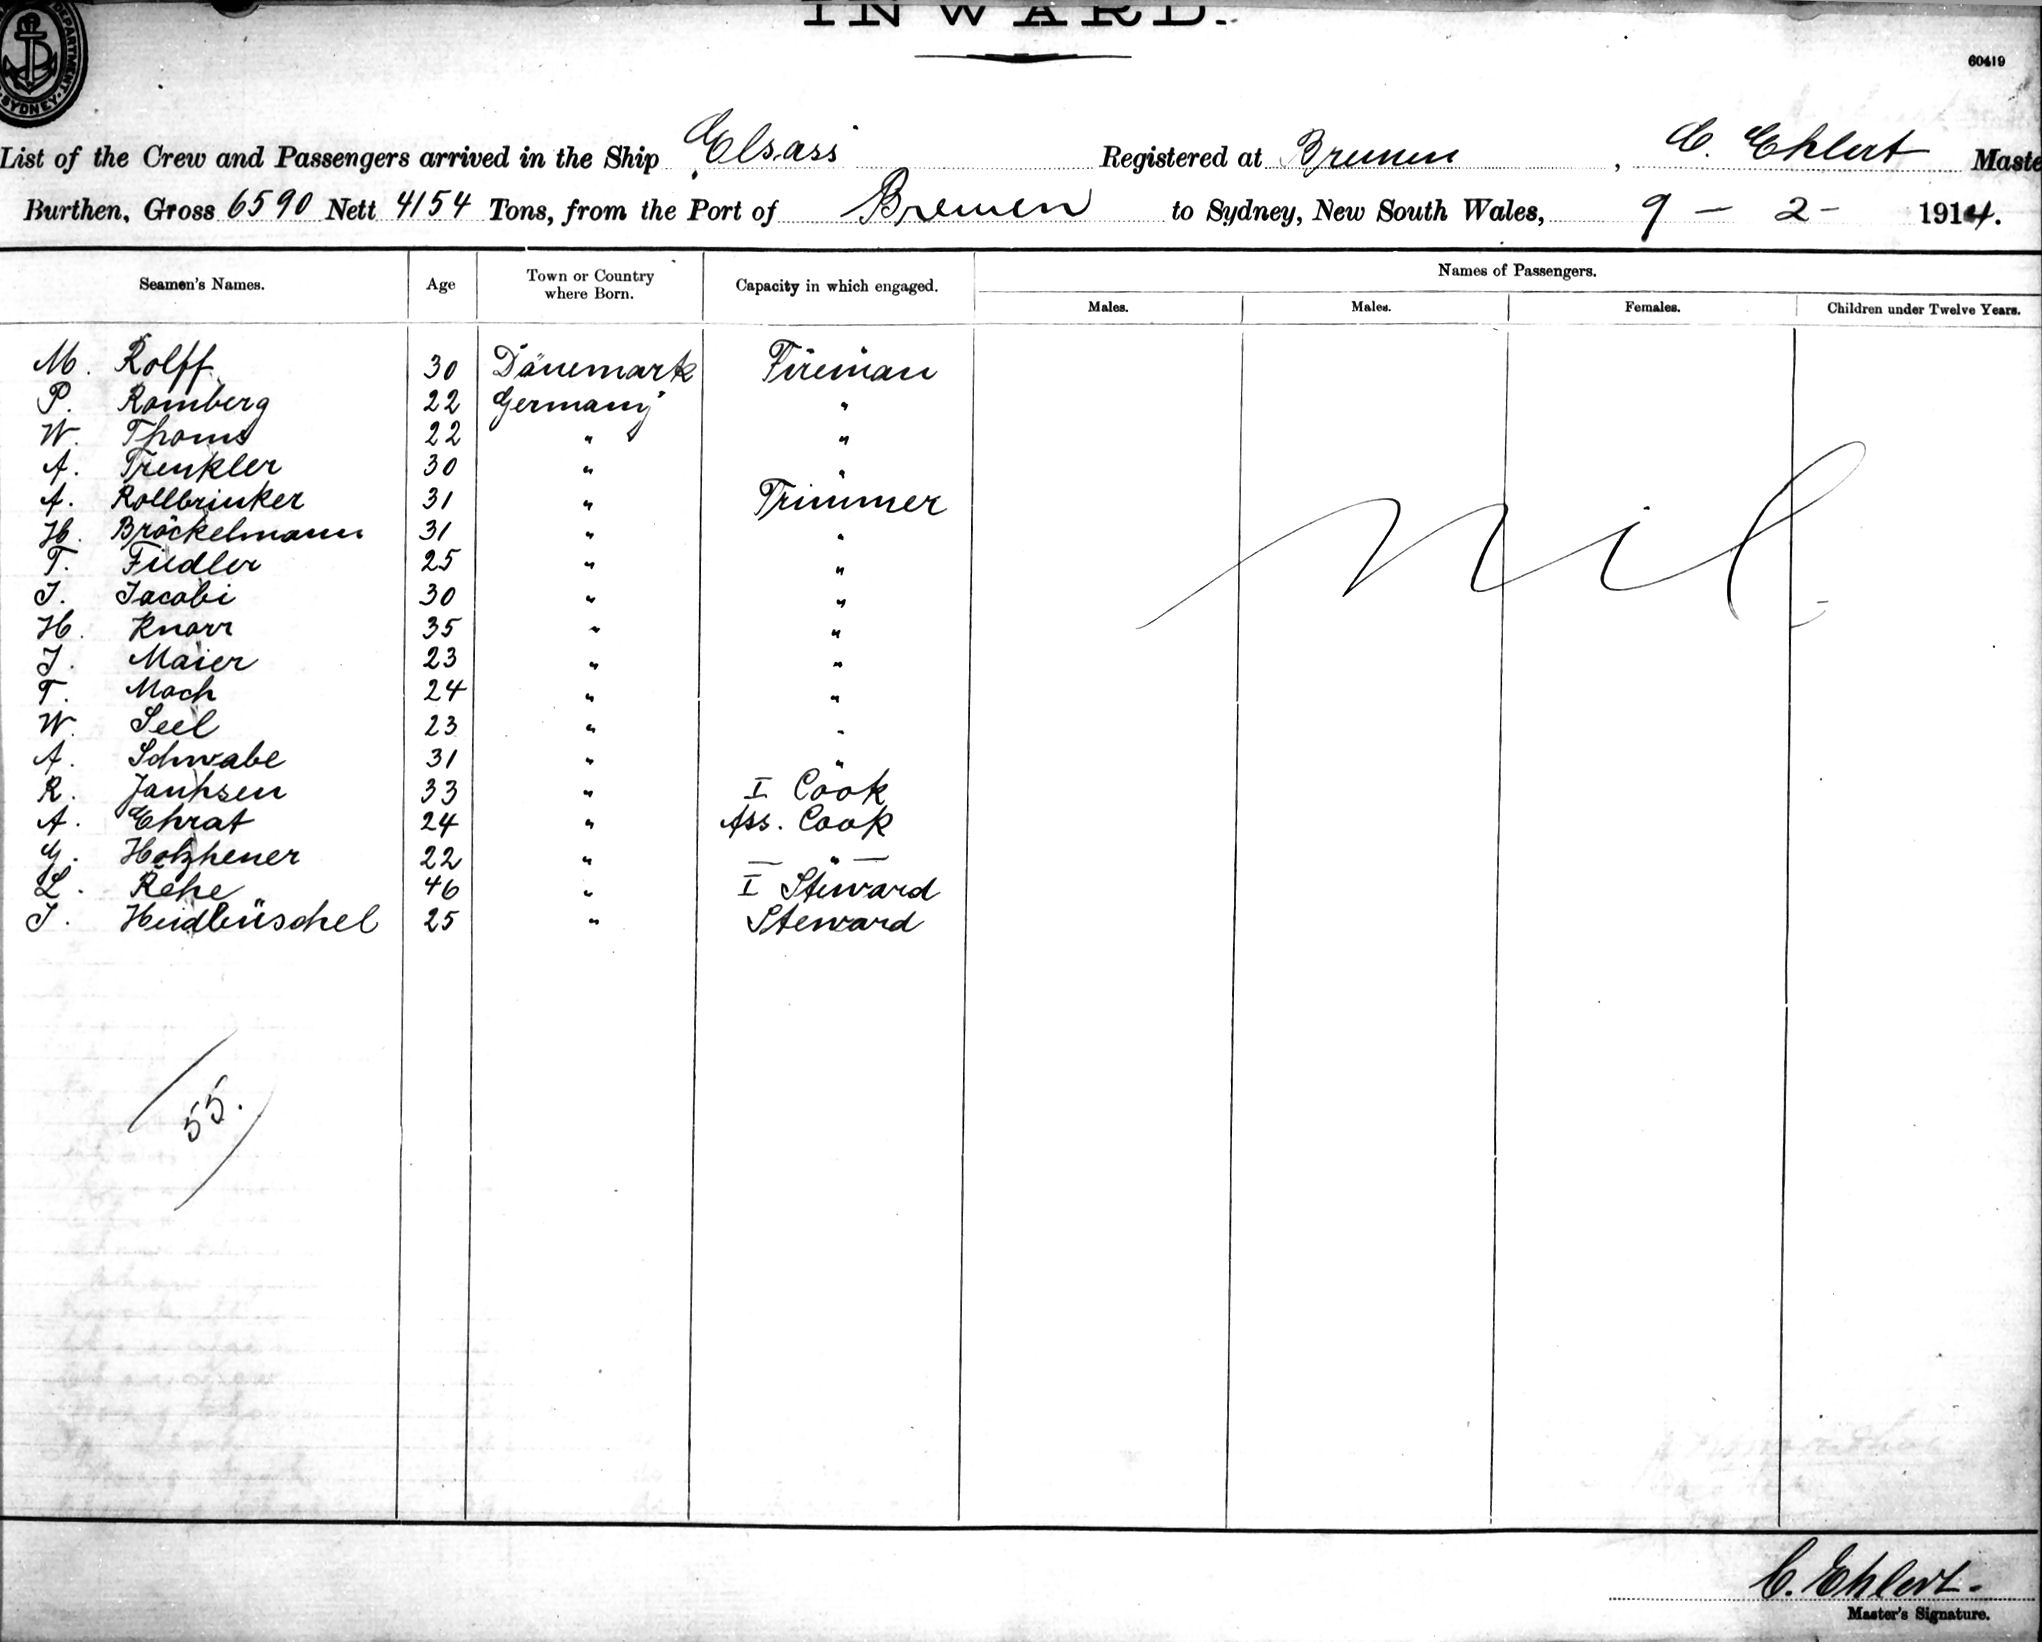 INWARD.
DEPARTMENT SYDNEY
60419
List of the Crew and Passengers arrived in the Ship Elsass Registered at Bremen, C. Ehlert Maste
Burthen, Gross 6590 Nett 4154 Tons, from the Port of Bremen to Sydney, New South Wales, 9 - 2 - 1914.
Seamen's Names. Age Town or Country where Born. Capacity in which engaged. Names of Passengers.
Males. Males. Females. Children under Twelve Years.
M. Rolff 30 Dänemark Fireman
P. Romberg 22 Germany "
W. Thoms 22 " "
A. Trenkler 30 " "
A. Rollbrinker 31 " Trimmer
H. Bröckelmann 31 " "
T. Fiedler 25 " "
J. Jacobi 30 " "
H. Knorr 35 " "
J. Maier 23 " "
T. Moch 24 " "
W. Seel 23 " "
A. Schwabe 31 " "
R. Janhsen 33 " I Cook
A. Ehrat 24 " Ass. Cook
G. Holzhener 22 " — " —
L. Rehe 46 " I Steward
J. Heidbüschel 25 " Steward
Nil
55.
C. Ehlert.
Master's Signature.